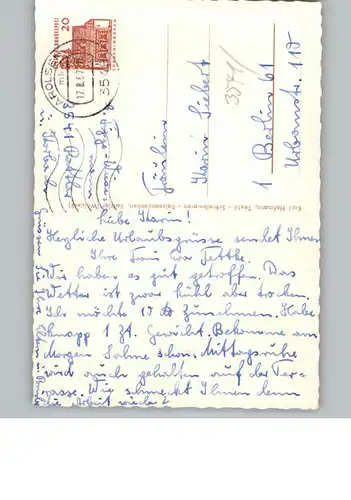 20
AROLSEN
17.8.67
354
3541/
Fräulein
Karin Siebert
1 Berlin 61
Urbanstr. 115
Karl Hofmann, Textil - Schreibwaren - Reiseandenken
Liebe Karin!
Herzliche Urlaubsgrüsse sendet Ihnen
Ihre Frau Eva Tettke.
Wir haben es gut getroffen. Das
Wetter ist zwar kühl aber trocken.
Ich möchte 10 ℔ Zunehmen. Habe
knapp 1 Zt. Gewicht. Bekomme am
Morgen Sahne schon. Mittagsruhe
wird auch gehalten auf der Ter-
rasse. Wie schmeckt Ihnen denn
die Arbeit wieder?